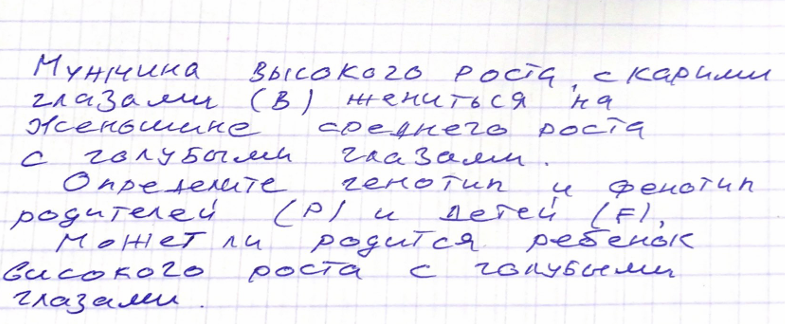 Мужчина высокого роста, с карими
глазами (В) жениться на
женьшине среднего роста
с голубыми глазами.
Определите генотип и фенотип
родителей (Р) и детей (F).
Может ли родится ребенок
високого роста с голубыми
глазами.